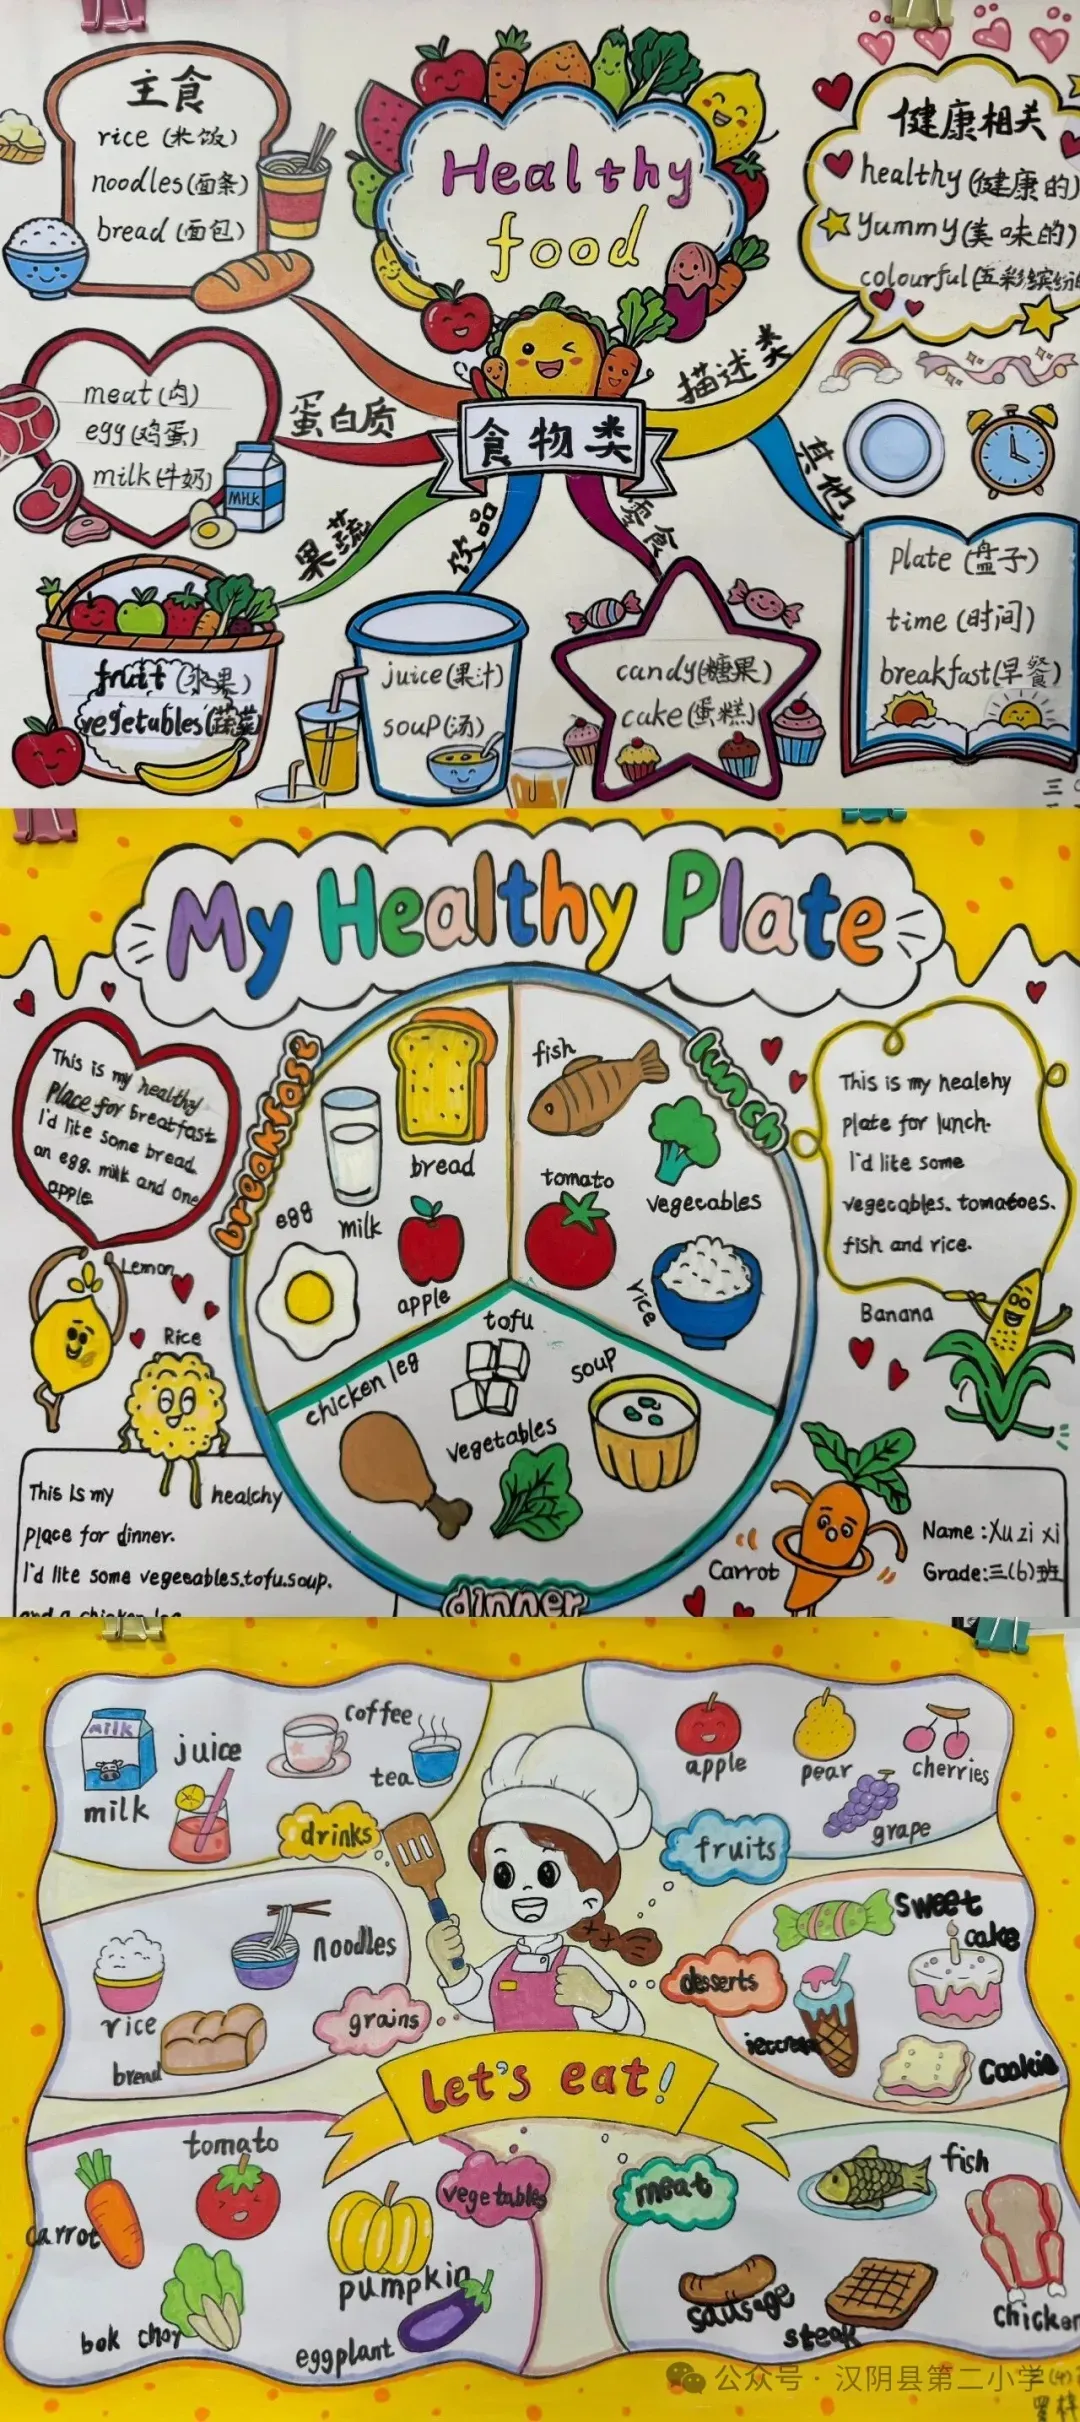 Healthy
food
主食
rice (米饭)
noodles(面条)
bread (面包)
健康相关
healthy(健康的)
yummy(美味的)
colourful(五彩缤纷
meat(肉)
egg(鸡蛋)
milk(牛奶)
MILK
蛋白质
食物类
描述类
其他
果蔬
饮品
零食
plate (盘子)
time (时间)
breakfast(早餐)
fruit (水果)
vegetables(蔬菜)
juice(果汁)
soup(汤)
candy(糖果)
cake(蛋糕)
三
My Healthy Plate
breakfast
lunch
dinner
This is my healthy
Place for breatfast
I'd lite some bread
an egg. milk and one
apple
bread
egg
milk
apple
fish
tomato
vegetables
rice
This is my healehy
plate for lunch.
I'd lite some
vegecables. tomatoes.
fish and rice.
Lemon
Rice
Banana
tofu
chicken leg
vegetables
soup
This Is my healchy
place for dinner.
I'd lite some vegeeables.tofu.soup.
and a chicken leg
Carrot
Name :Xu zi xi
Grade:三(6)班
milk
milk
juice
coffee
tea
drinks
apple
pear
cherries
grape
fruits
noodles
rice
bread
grains
sweet
cake
cookie
desserts
Let's eat!
tomato
carrot
pumpkin
bok choy
eggplant
vegetables
meat
fish
sausage
steak
chicken
公众号·汉阴县第二小学